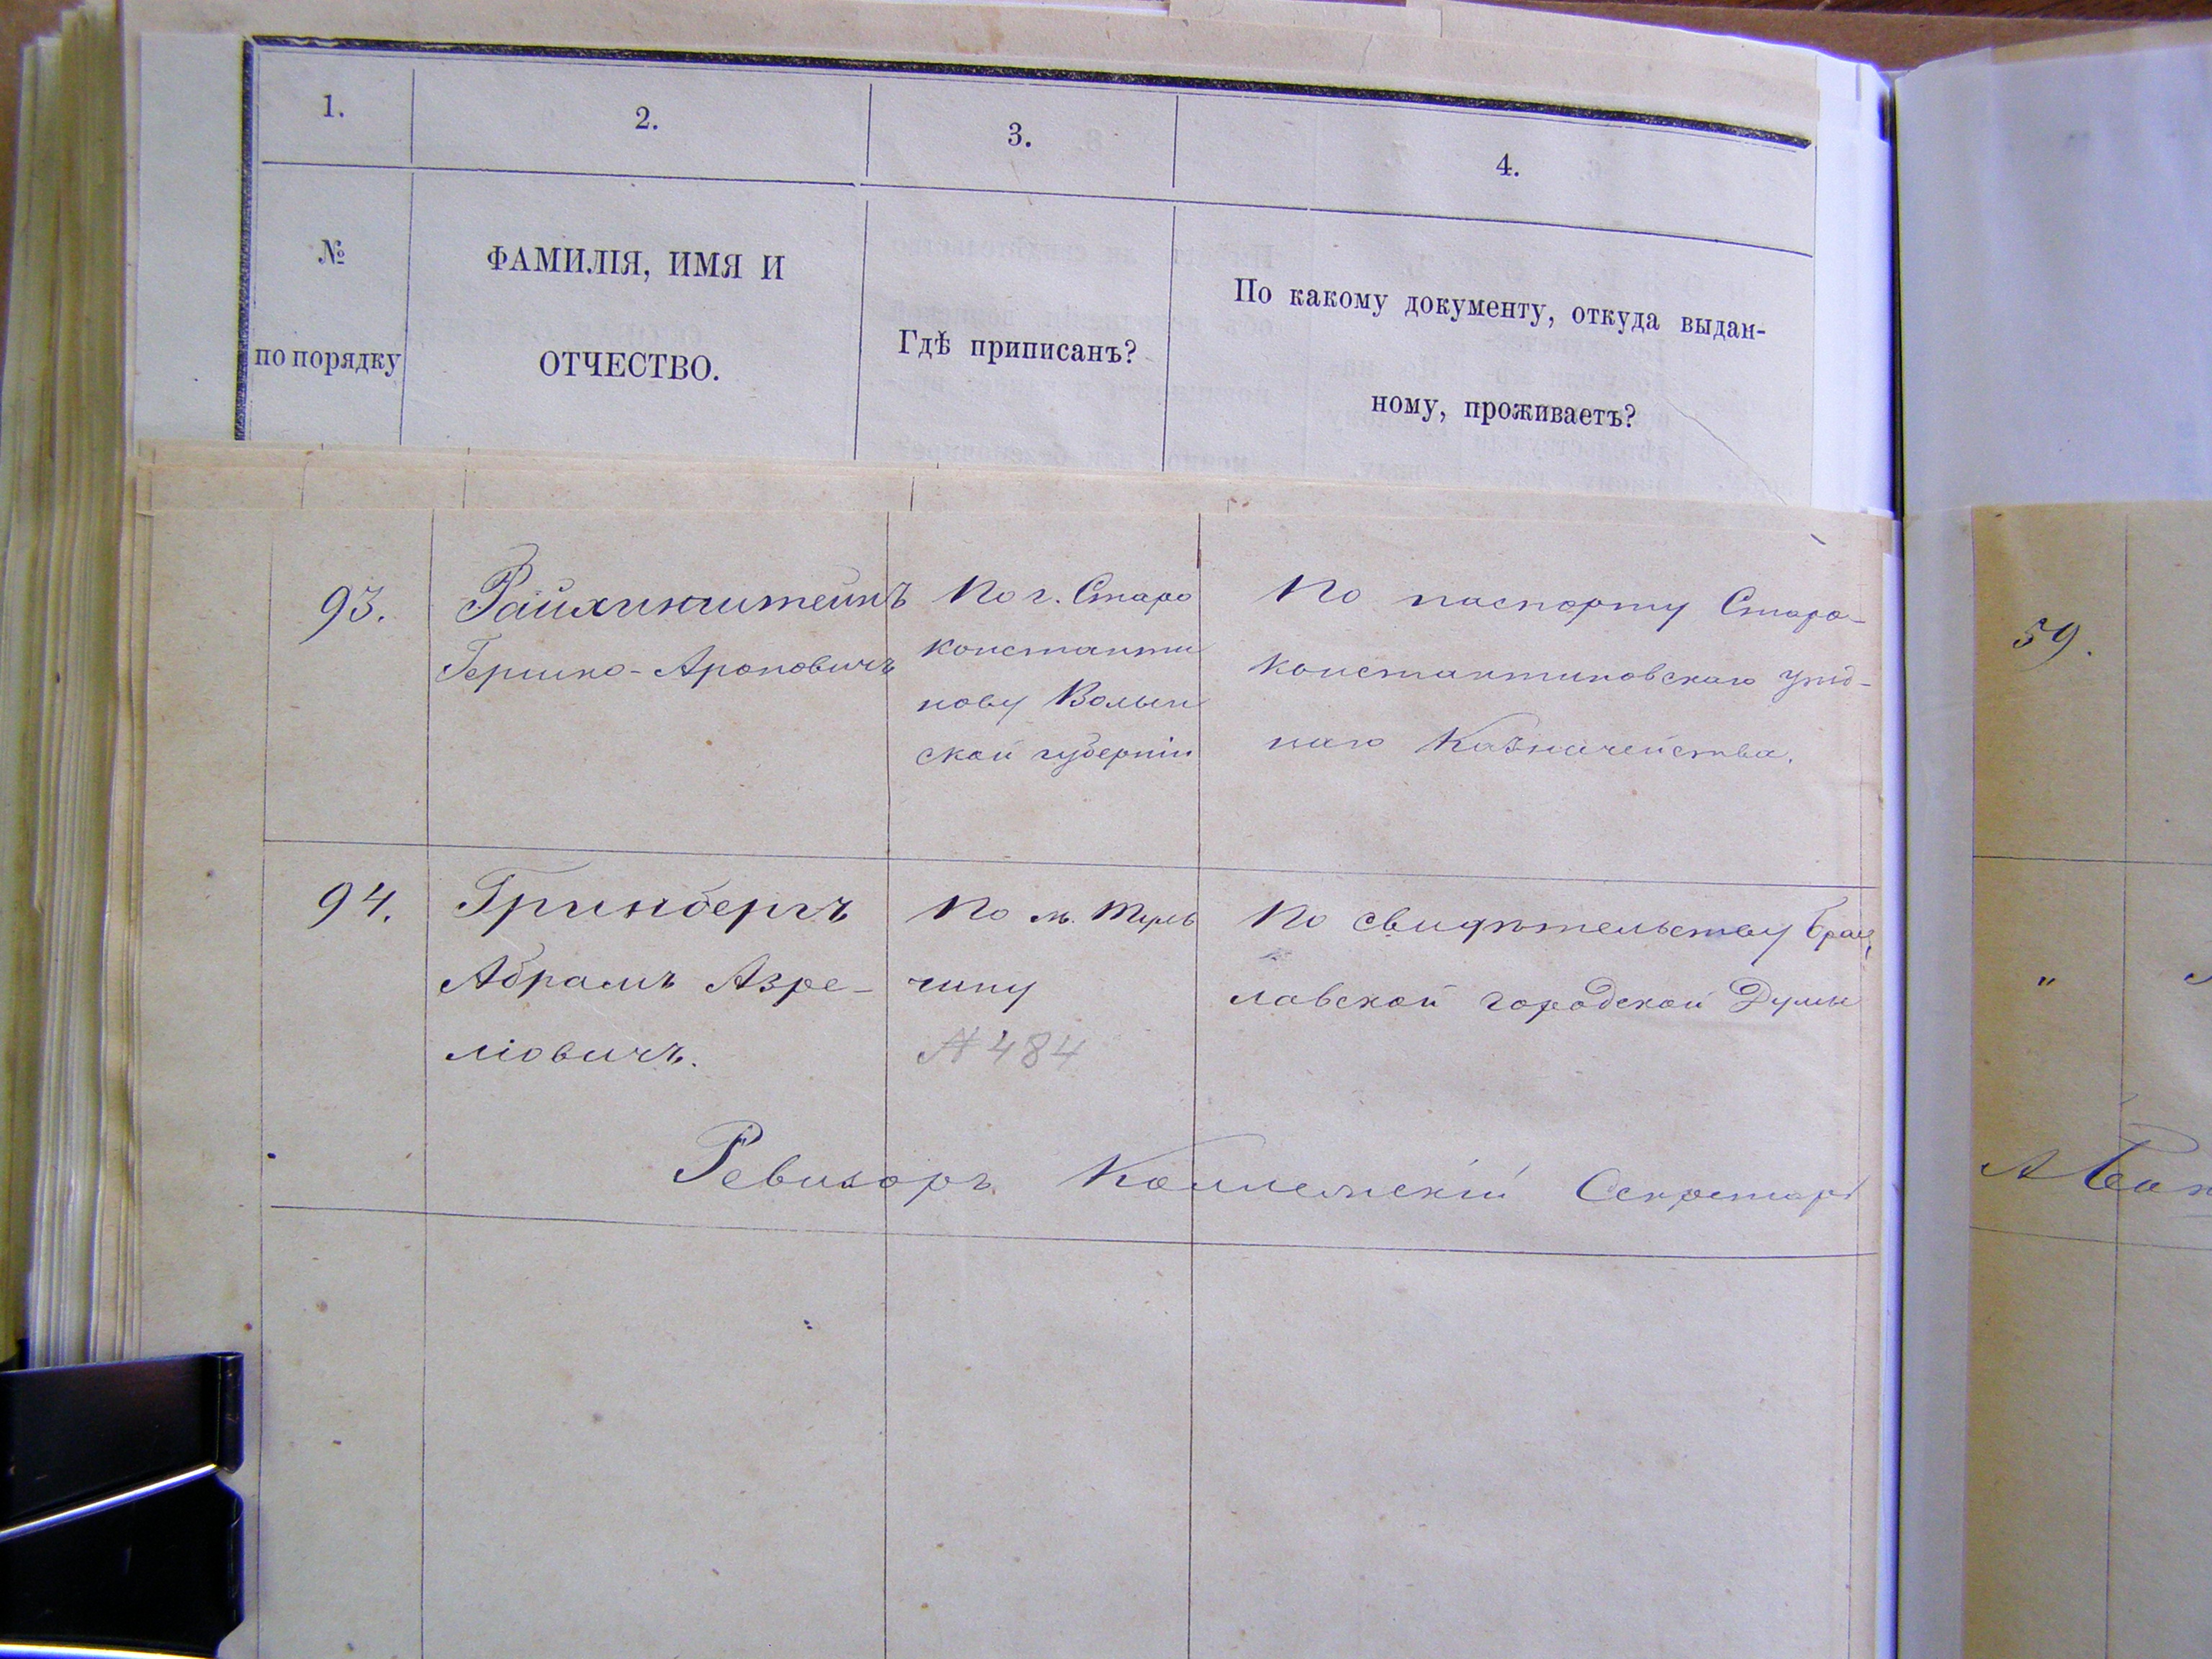 1. 2. 3. 4.
№
по порядку
ФАМИЛІЯ, ИМЯ И
ОТЧЕСТВО.
Гдѣ приписанъ?
По какому документу, откуда выдан-
ному, проживаетъ?
93.
Райхинштейнъ
Гершко-Ароновичъ
По г. Старо
константи
нову Волын
ской губерніи
По паспорту Старо-
константиновскаго уѣзд-
наго Казначейства.
59.
94.
Гринбергъ
Абрамъ Азре-
ліовичъ.
По м.
чину
№ 484
По свидѣтельству Брац
лавской городской Думы
"
Ревизоръ Коллежскій Секретарь